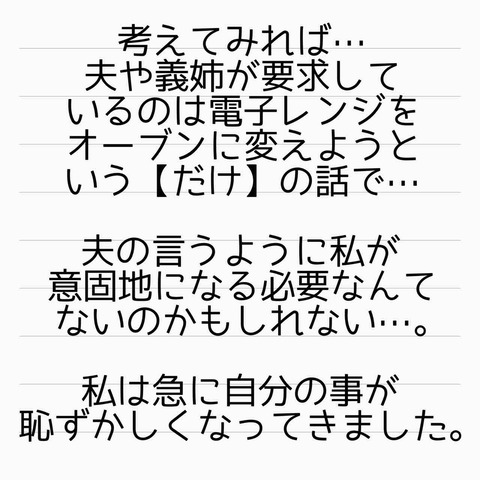 考えてみれば…
夫や義姉が要求して
いるのは電子レンジを
オーブンに変えようと
いう【だけ】の話で…
夫の言うように私が
意固地になる必要なんて
ないのかもしれない…。
私は急に自分の事が
恥ずかしくなってきました。